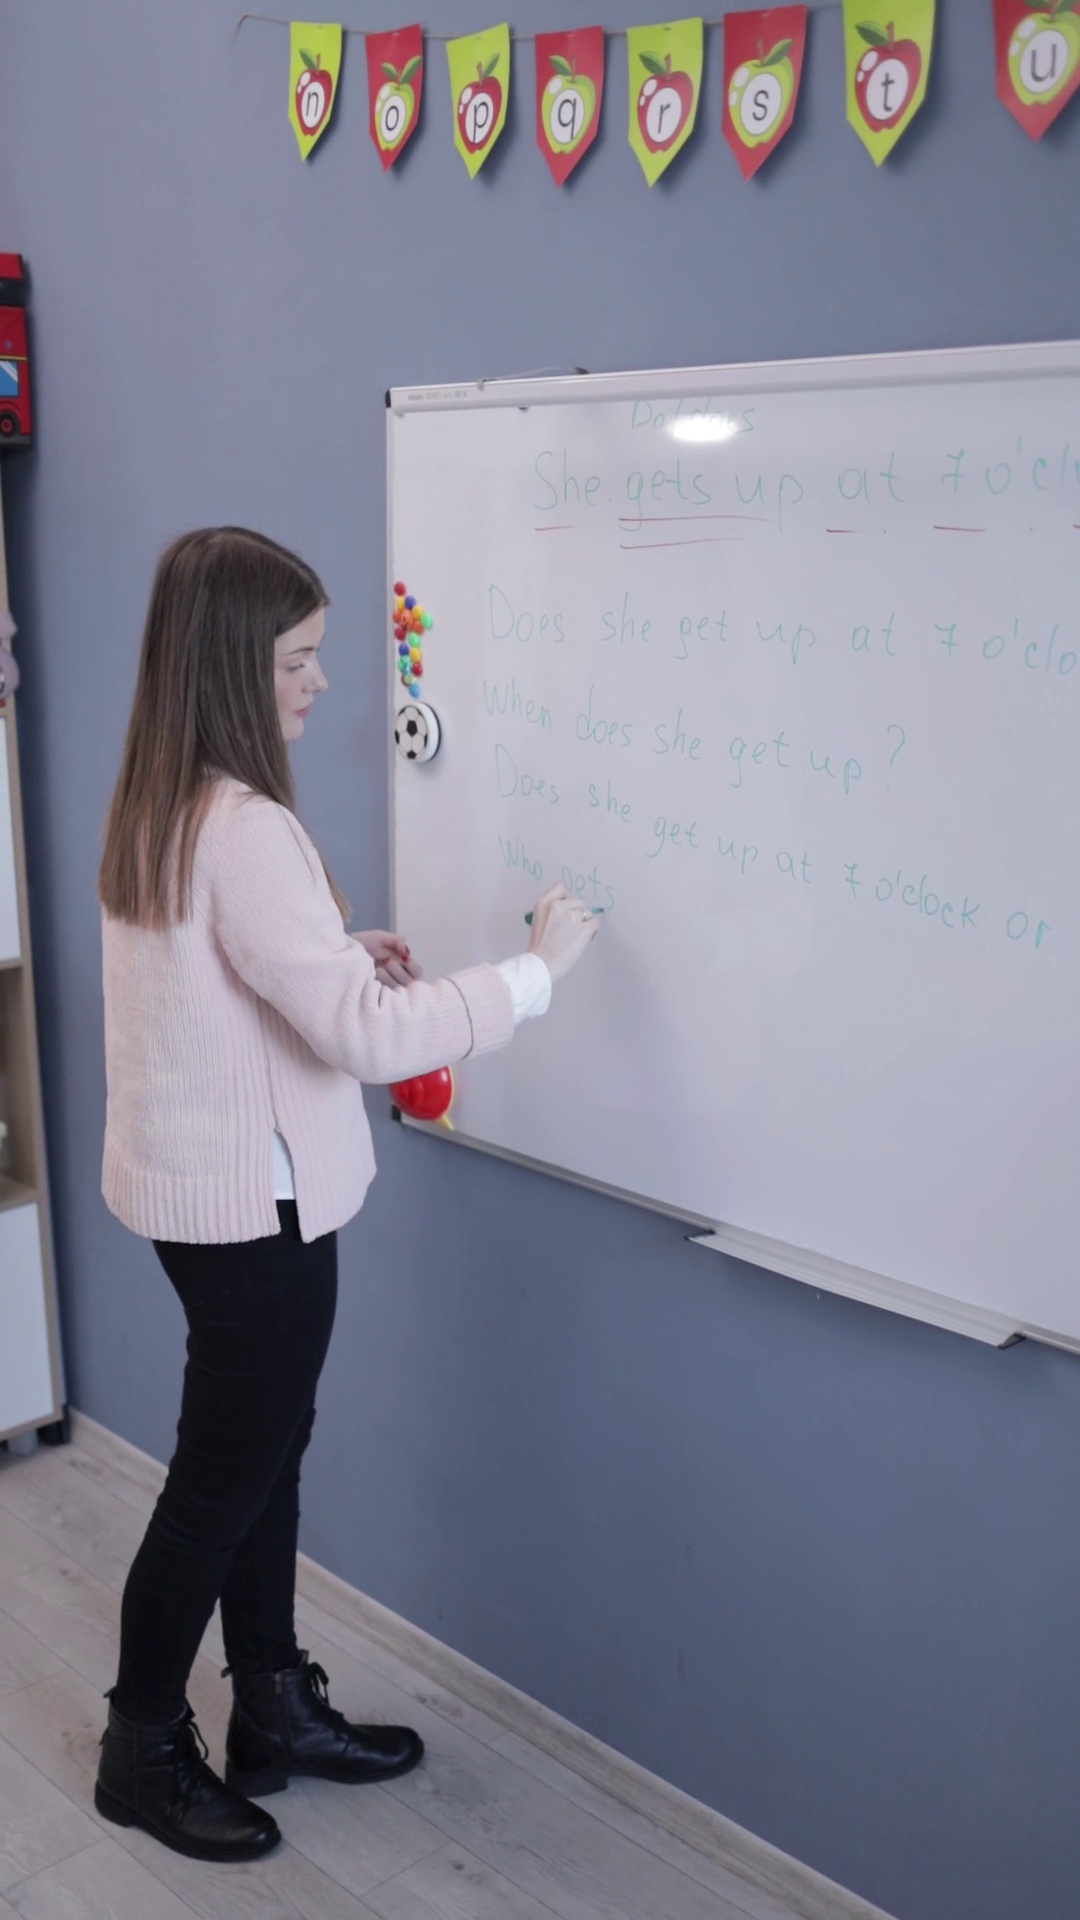 n o p q r s t u
She gets up at 7 o'cl
Does she get up at 7 o'clo
When does she get up ?
Does she get up at 7 o'clock or
Who gets